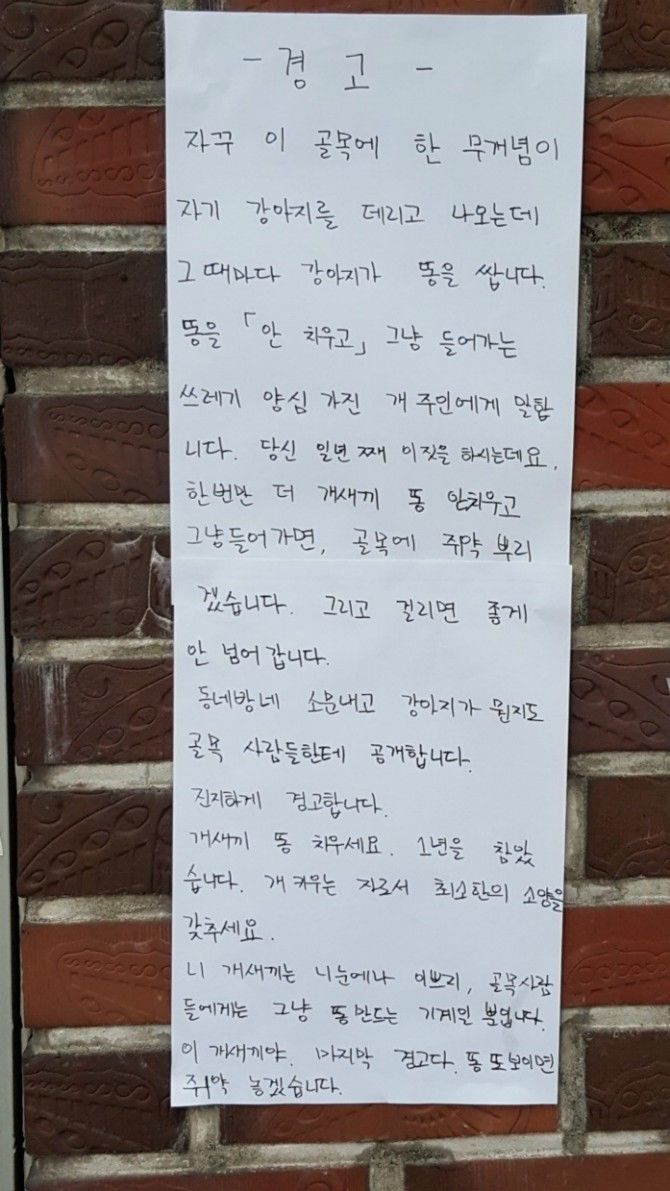 - 경 고 -
자꾸 이 골목에 한 무개념이
자기 강아지를 데리고 나오는데
그 때마다 강아지가 똥을 쌉니다.
똥을 「안 치우고」 그냥 들어가는
쓰레기 양심 가진 개 주인에게 말합
니다. 당신 일년 째 이짓을 하시는데요.
한번만 더 개새끼 똥 안치우고
그냥들어가면, 골목에 쥐약 뿌리
겠습니다. 그리고 걸리면 좋게
안 넘어 갑니다.
동네방네 소문내고 강아지가 뭔지도
골목 사람들한테 공개합니다.
진지하게 경고합니다.
개새끼 똥 치우세요. 1년을 참았
습니다. 개 키우는 자로서 최소한의 소양을
갖추세요.
니 개새끼는 니눈에나 이쁘리, 골목사람
들에게는 그냥 똥만드는 기계일 뿐입니다.
이 개새끼야. 마지막 경고다. 똥 또보이면
쥐약 놓겠습니다.